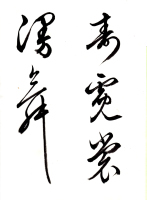 霓裳
漫舞